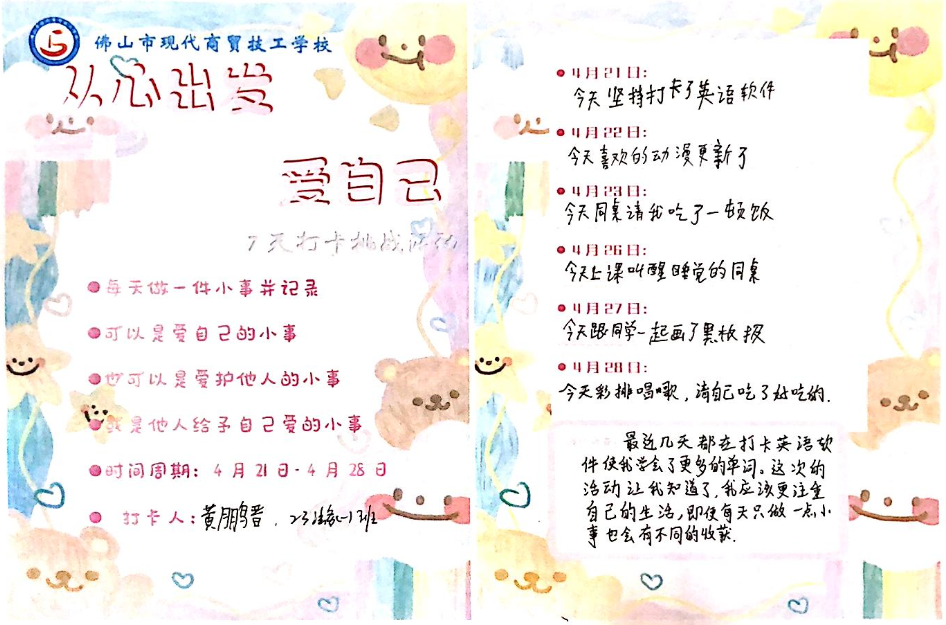 佛山市现代商贸技工学校
从心出发
爱自己
7天打卡挑战活动
每天做一件小事并记录
可以是爱自己的小事
也可以是爱护他人的小事
或是他人给予自己爱的小事
时间周期：4月21日-4月28日
打卡人：黄鹏
4月21日：
今天坚持打卡了英语软件
4月22日：
今天喜欢的动漫更新了
4月23日：
今天同桌请我吃了一顿饭
4月26日：
今天上课叫醒睡觉的同桌
4月27日：
今天跟同学一起画了黑板报
4月28日：
今天彩排唱歌，请自己吃了好吃的.
最近几天都在打卡英语软
件使我学会了更多的单词。这次的
活动让我知道了，我应该更注重
自己的生活，即使每天只做一点小
事也会有不同的收获.